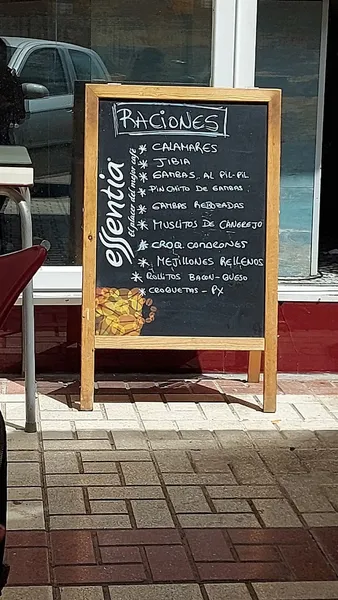 RACIONES
* CALAMARES
* JIBIA
* GAMBAS AL PIL-PIL
* PINCHITO DE GAMBAS
* GAMBAS REBOZADAS
* MUSLITOS DE CANGREJO
* CROQ. COMORONES
* MEJILLONES RELLENOS
* ROLLITOS BACON-QUESO
* CROQUETAS - PX
essentia
El placer del mejor café